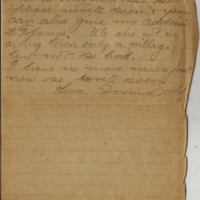 please write soon & you
can also give my address
to We are not in
a big town only a village
but not so bad.
I have no more news just
now so write soon
Love